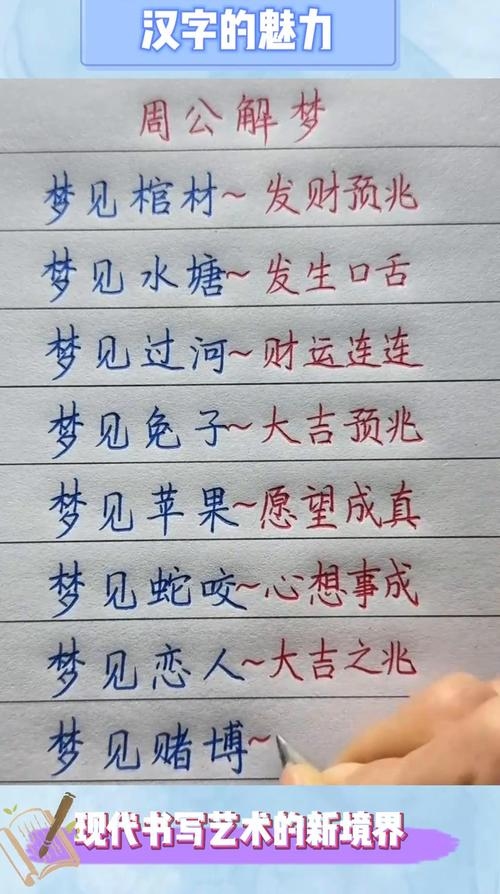 汉字的魅力
周公解梦
梦见棺材~发财预兆
梦见水塘~发生口舌
梦见过河~财运连连
梦见兔子~大吉预兆
梦见苹果~愿望成真
梦见蛇咬~心想事成
梦见恋人~大吉之兆
梦见赌博~
现代书写艺术的新境界